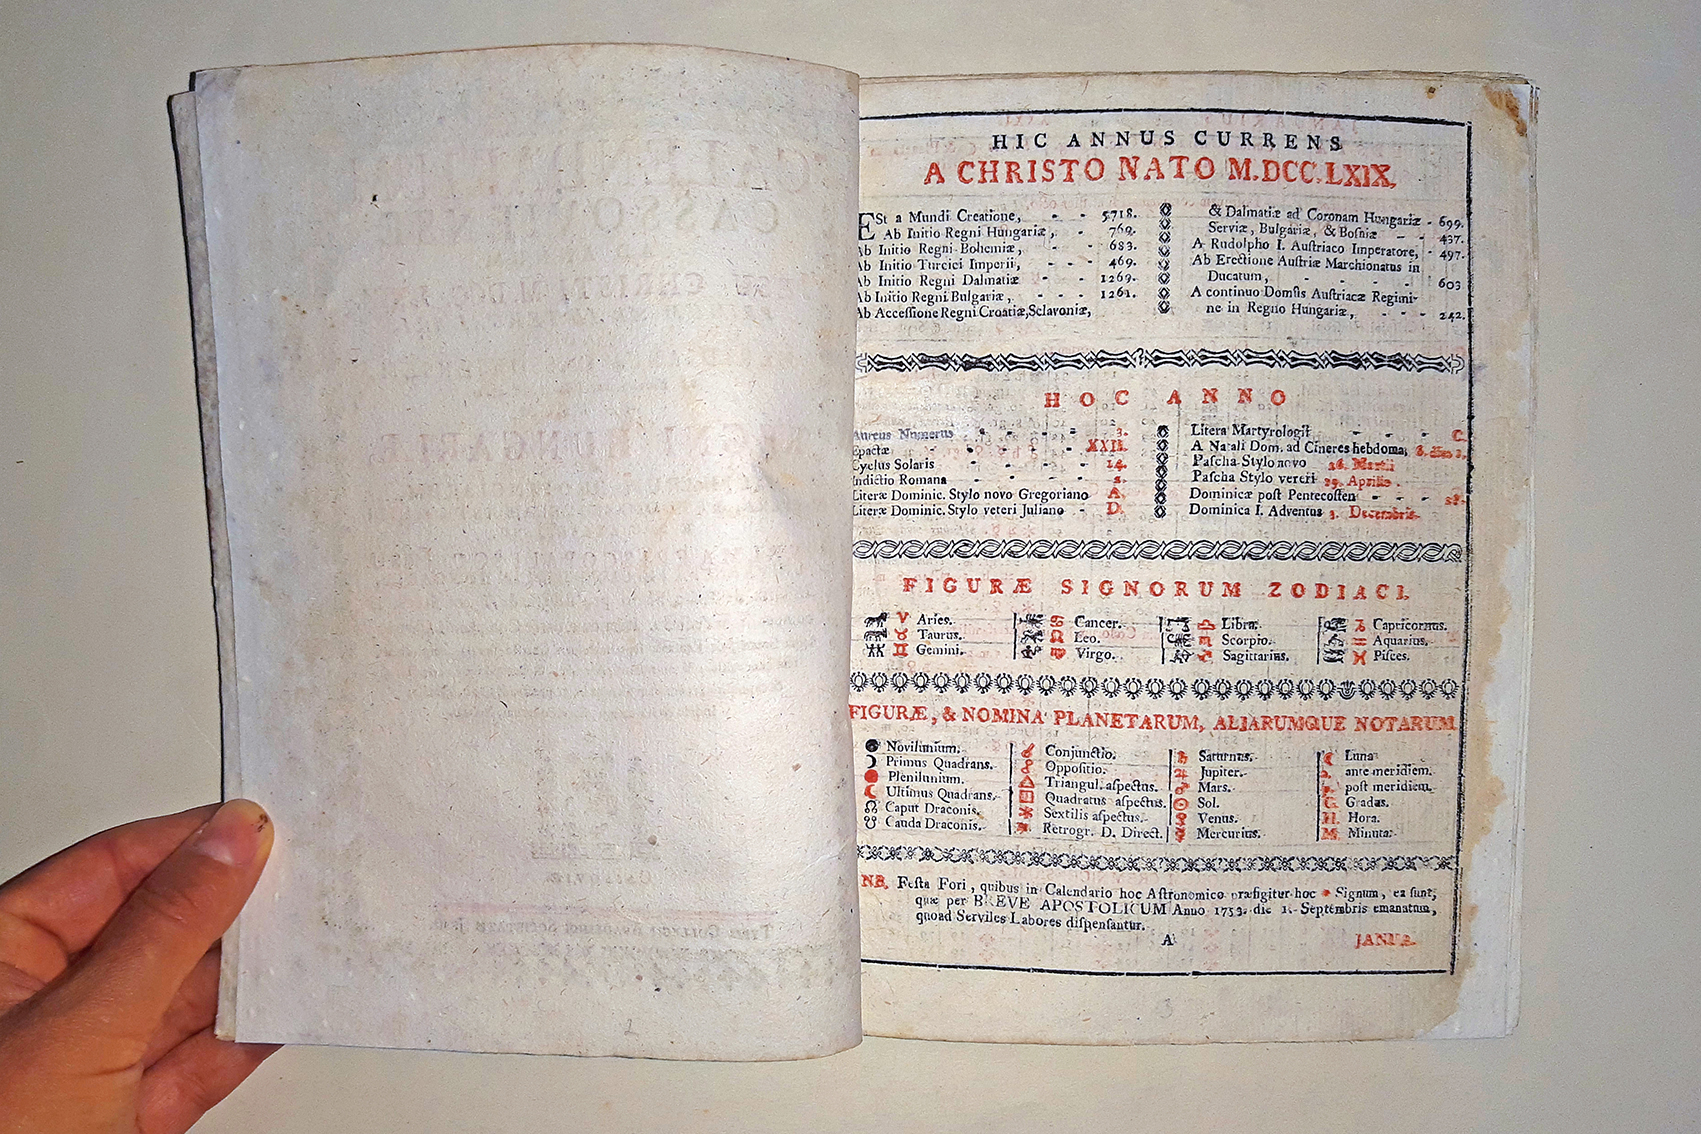 HIC ANNUS CURRENS
A CHRISTO NATO M.DCC.LXIX.
ESt a Mundi Creatione, - - 5718.
Ab Initio Regni Hungariæ, - 769.
Ab Initio Regni Bohemiæ, - - 683.
Ab Initio Turcici Imperii, - - - 469.
Ab Initio Regni Dalmatiæ - - 1269.
Ab Initio Regni Bulgariæ, - - - 1261.
Ab Accessione Regni Croatiæ, Sclavoniæ,
& Dalmatiæ ad Coronam Hungariæ - 699.
Serviæ, Bulgariæ, & Bosniæ - - 437.
A Rudolpho I. Austriaco Imperatore, - 497.
Ab Erectione Austriæ Marchionatus in
Ducatum, - - - - - 603
A continuo Domûs Austriacæ Regimi-
ne in Regno Hungariæ, - - - 242.
HOC ANNO
Aureus Numerus - - - - 3.
Epactæ - - - - XXII.
Cyclus Solaris - - - - 14.
Indictio Romana - - - - 2.
Literæ Dominic. Stylo novo Gregoriano A.
Literæ Dominic. Stylo veteri Juliano - D.
Litera Martyrologii - - - C.
A Natali Dom. ad Cineres hebdomæ
Pascha Stylo novo 26. Martii
Pascha Stylo veteri Aprilis.
Dominicæ post Pentecosten - - -
Dominica I. Adventus 3. Decembris.
FIGURÆ SIGNORUM ZODIACI.
♈ Aries.
♉ Taurus.
♊ Gemini.
♋ Cancer.
♌ Leo.
♍ Virgo.
♎ Libra.
♏ Scorpio.
♐ Sagittarius.
♑ Capricornus.
♒ Aquarius.
♓ Pisces.
FIGURÆ, & NOMINA PLANETARUM, ALIARUMQUE NOTARUM.
Novilunium.
Primus Quadrans.
Plenilunium.
Ultimus Quadrans.
☊ Caput Draconis.
☋ Cauda Draconis.
☌ Conjunctio.
☍ Oppositio.
△ Triangul. aspectus.
□ Quadratus aspectus.
Sextilis aspectus.
Retrogr. D. Direct.
♄ Saturnus.
♃ Jupiter.
♂ Mars.
☉ Sol.
♀ Venus.
☿ Mercurius.
☾ Luna
ante meridiem.
post meridiem.
G. Gradus.
H. Hora.
M. Minuta.
NB. Festa Fori, quibus in Calendario hoc Astronomico præfigitur hoc Signum, ea sunt,
quæ per BREVE APOSTOLICUM Anno 1753. die 1. Septembris emanatum,
quoad Serviles Labores dispensantur.
A JANUA-
3
2